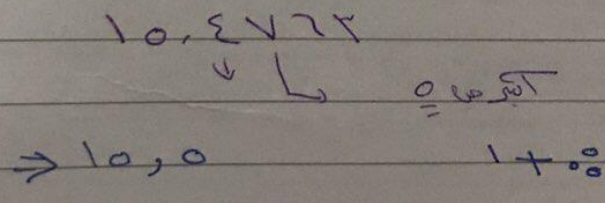 ١٥,٤٧٦٢
أكبر من ٥
١ + ∴
⇒ ١٥,٥